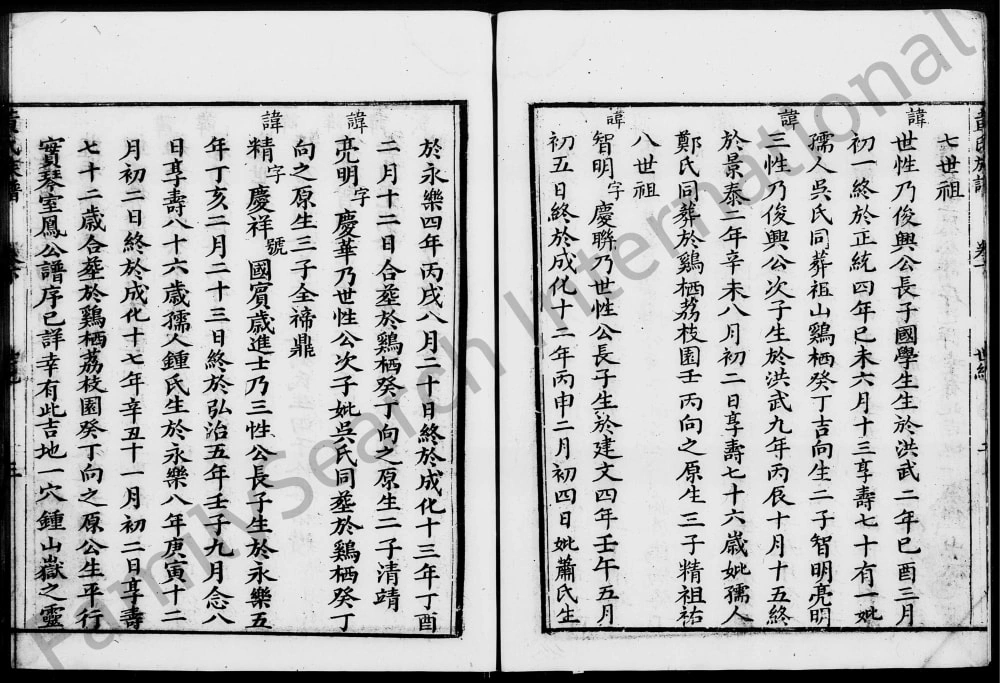 七世祖
諱世性乃俊興公長子國學生生於洪武二年巳酉三月
初一終於正統四年巳未六月十三享壽七十有一妣
孺人吳氏同葬祖山鷄栖癸丁吉向生二子智明亮明
諱三性乃俊興公次子生於洪武九年丙辰十月十五終
於景泰二年辛未八月初二日享壽七十六歲妣孺人
鄭氏同葬於鷄栖荔枝園壬丙向之原生三子精祖祐
八世祖
諱智明字慶聯乃世性公長子生於建文四年壬午五月
初五日終於成化十二年丙申二月初四日妣蕭氏生
於永樂四年丙戌八月二十日終於成化十三年丁酉
二月十二日合塟於鷄栖癸丁向之原生二子清靖
諱亮明字慶華乃世性公次子妣吳氏同塟於鷄栖癸丁
向之原生三子全禘鼎
諱精字慶祥號國賓歲進士乃三性公長子生於永樂五
年丁亥二月二十三日終於弘治五年壬子九月念八
日享壽八十六歲孺人鍾氏生於永樂八年庚寅十二
月初二日終於成化十七年辛丑十一月初二日享壽
七十二歲合塟於鷄栖荔枝園癸丁向之原公生平行
實琴室鳳公譜序已詳幸有此吉地一穴鍾山嶽之靈
黃氏族譜
世紀
FamilySearch International